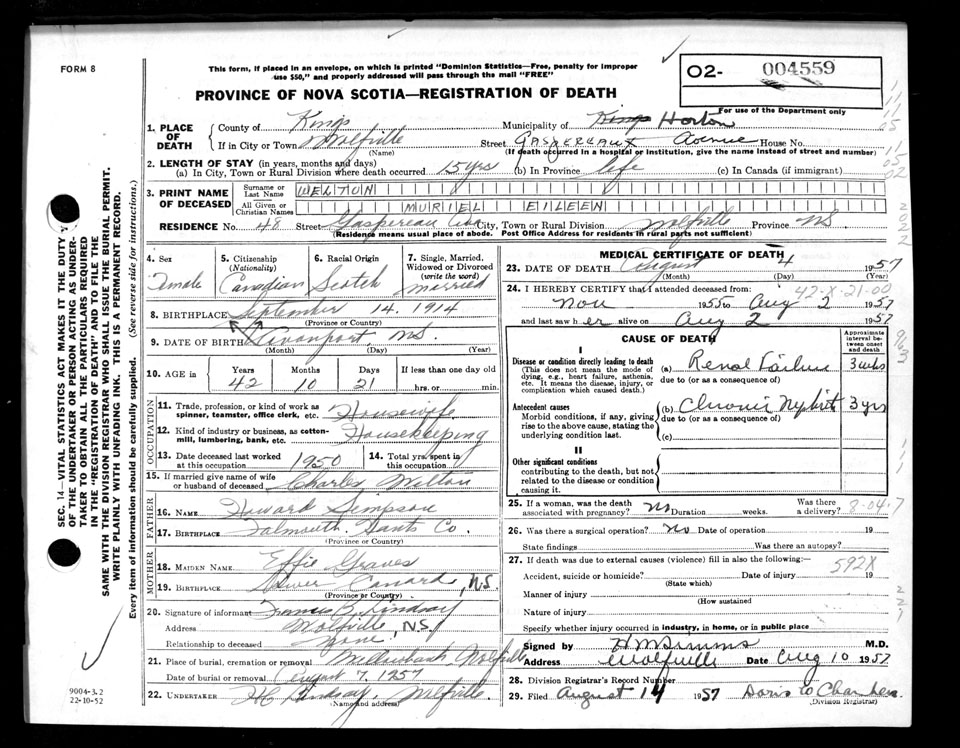 FORM 8
This form, if placed in an envelope, on which is printed "Dominion Statistics—Free, penalty for improper
use $50," and properly addressed will pass through the mail "FREE"
O2- 004559
For use of the Department only
PROVINCE OF NOVA SCOTIA—REGISTRATION OF DEATH
1. PLACE OF DEATH
County of Kings Municipality of Kings Horton
If in City or Town Wolfville Street Gaspereaux Avenue House No.
(Name) (If death occurred in a hospital or institution, give the name instead of street and number)
2. LENGTH OF STAY (in years, months and days)
(a) In City, Town or Rural Division where death occurred 15 yrs (b) In Province life (c) In Canada (if immigrant)
3. PRINT NAME OF DECEASED
Surname or Last Name WELTON
All Given or Christian Names MURIEL EILEEN
RESIDENCE No. 48 Street Gaspereau Ave City, Town or Rural Division Wolfville Province NS
(Residence means usual place of abode. Post Office Address for residents in rural parts not sufficient)
4. Sex Female
5. Citizenship (Nationality) Canadian
6. Racial Origin Scotch
7. Single, Married, Widowed or Divorced (write the word) married
8. BIRTHPLACE September 14. 1914
(Province or Country)
9. DATE OF BIRTH Avonport, NS.
(Month) (Day) (Year)
10. AGE Years 42 Months 10 Days 21 If less than one day old hrs. or min.
OCCUPATION
11. Trade, profession, or kind of work as spinner, teamster, office clerk, etc. Housewife
12. Kind of industry or business, as cotton-mill, lumbering, bank, etc. Housekeeping
13. Date deceased last worked at this occupation 1950
14. Total yrs. spent in this occupation
15. If married give name of wife or husband of deceased Charles Welton
FATHER
16. NAME Howard Simpson
17. BIRTHPLACE Falmouth Hants Co.
(Province or Country)
MOTHER
18. MAIDEN NAME Effie Graves
19. BIRTHPLACE Lower Canard, N.S.
(Province or Country)
20. Signature of informant Francis B. Lindsay
Address Wolfville, N.S.
Relationship to deceased None
21. Place of burial, cremation or removal Willowbank Wolfville
Date of burial or removal August 7, 1957
22. UNDERTAKER Lindsay, Wolfville
(Name and address)
MEDICAL CERTIFICATE OF DEATH
23. DATE OF DEATH August 4 1957
(Month) (Day) (Year)
24. I HEREBY CERTIFY that I attended deceased from:
42-X-21-00
Nov 1955 to Aug 2 1957
and last saw her alive on Aug 2 1957
CAUSE OF DEATH
Approximate interval between onset and death
I
Disease or condition directly leading to death
(This does not mean the mode of dying, e.g., heart failure, asthenia, etc. It means the disease, injury, or complication which caused death.)
(a) Renal Failure 3 wks
due to (or as a consequence of)
Antecedent causes
Morbid conditions, if any, giving rise to the above cause, stating the underlying condition last.
(b) Chronic Nephritis 3 yrs
due to (or as a consequence of)
(c)
II
Other significant conditions
contributing to the death, but not related to the disease or condition causing it.
25. If a woman, was the death associated with pregnancy? No Duration weeks. Was there a delivery?
8-04-7
26. Was there a surgical operation? No Date of operation 19
State findings Was there an autopsy?
27. If death was due to external causes (violence) fill in also the following:
592X
Accident, suicide or homicide? Date of injury 19
(State which)
Manner of injury
(How sustained)
Nature of injury
Specify whether injury occurred in industry, in home, or in public place
Signed by H M Simms M.D.
Address Wolfville Date Aug 10 1957
28. Division Registrar's Record Number
29. Filed August 14 1957 Doris
(Division Registrar)
SEC. 14—VITAL STATISTICS ACT MAKES IT THE DUTY
OF THE UNDERTAKER OR PERSON ACTING AS UNDER-
TAKER TO OBTAIN ALL THE PARTICULARS REQUIRED
IN THE "REGISTRATION OF DEATH" AND TO FILE THE
SAME WITH THE DIVISION REGISTRAR WHO SHALL ISSUE THE BURIAL PERMIT.
WRITE PLAINLY WITH UNFADING INK. THIS IS A PERMANENT RECORD.
Every item of information should be carefully supplied. (See reverse side for instructions.)
9004-3.2
22-10-52